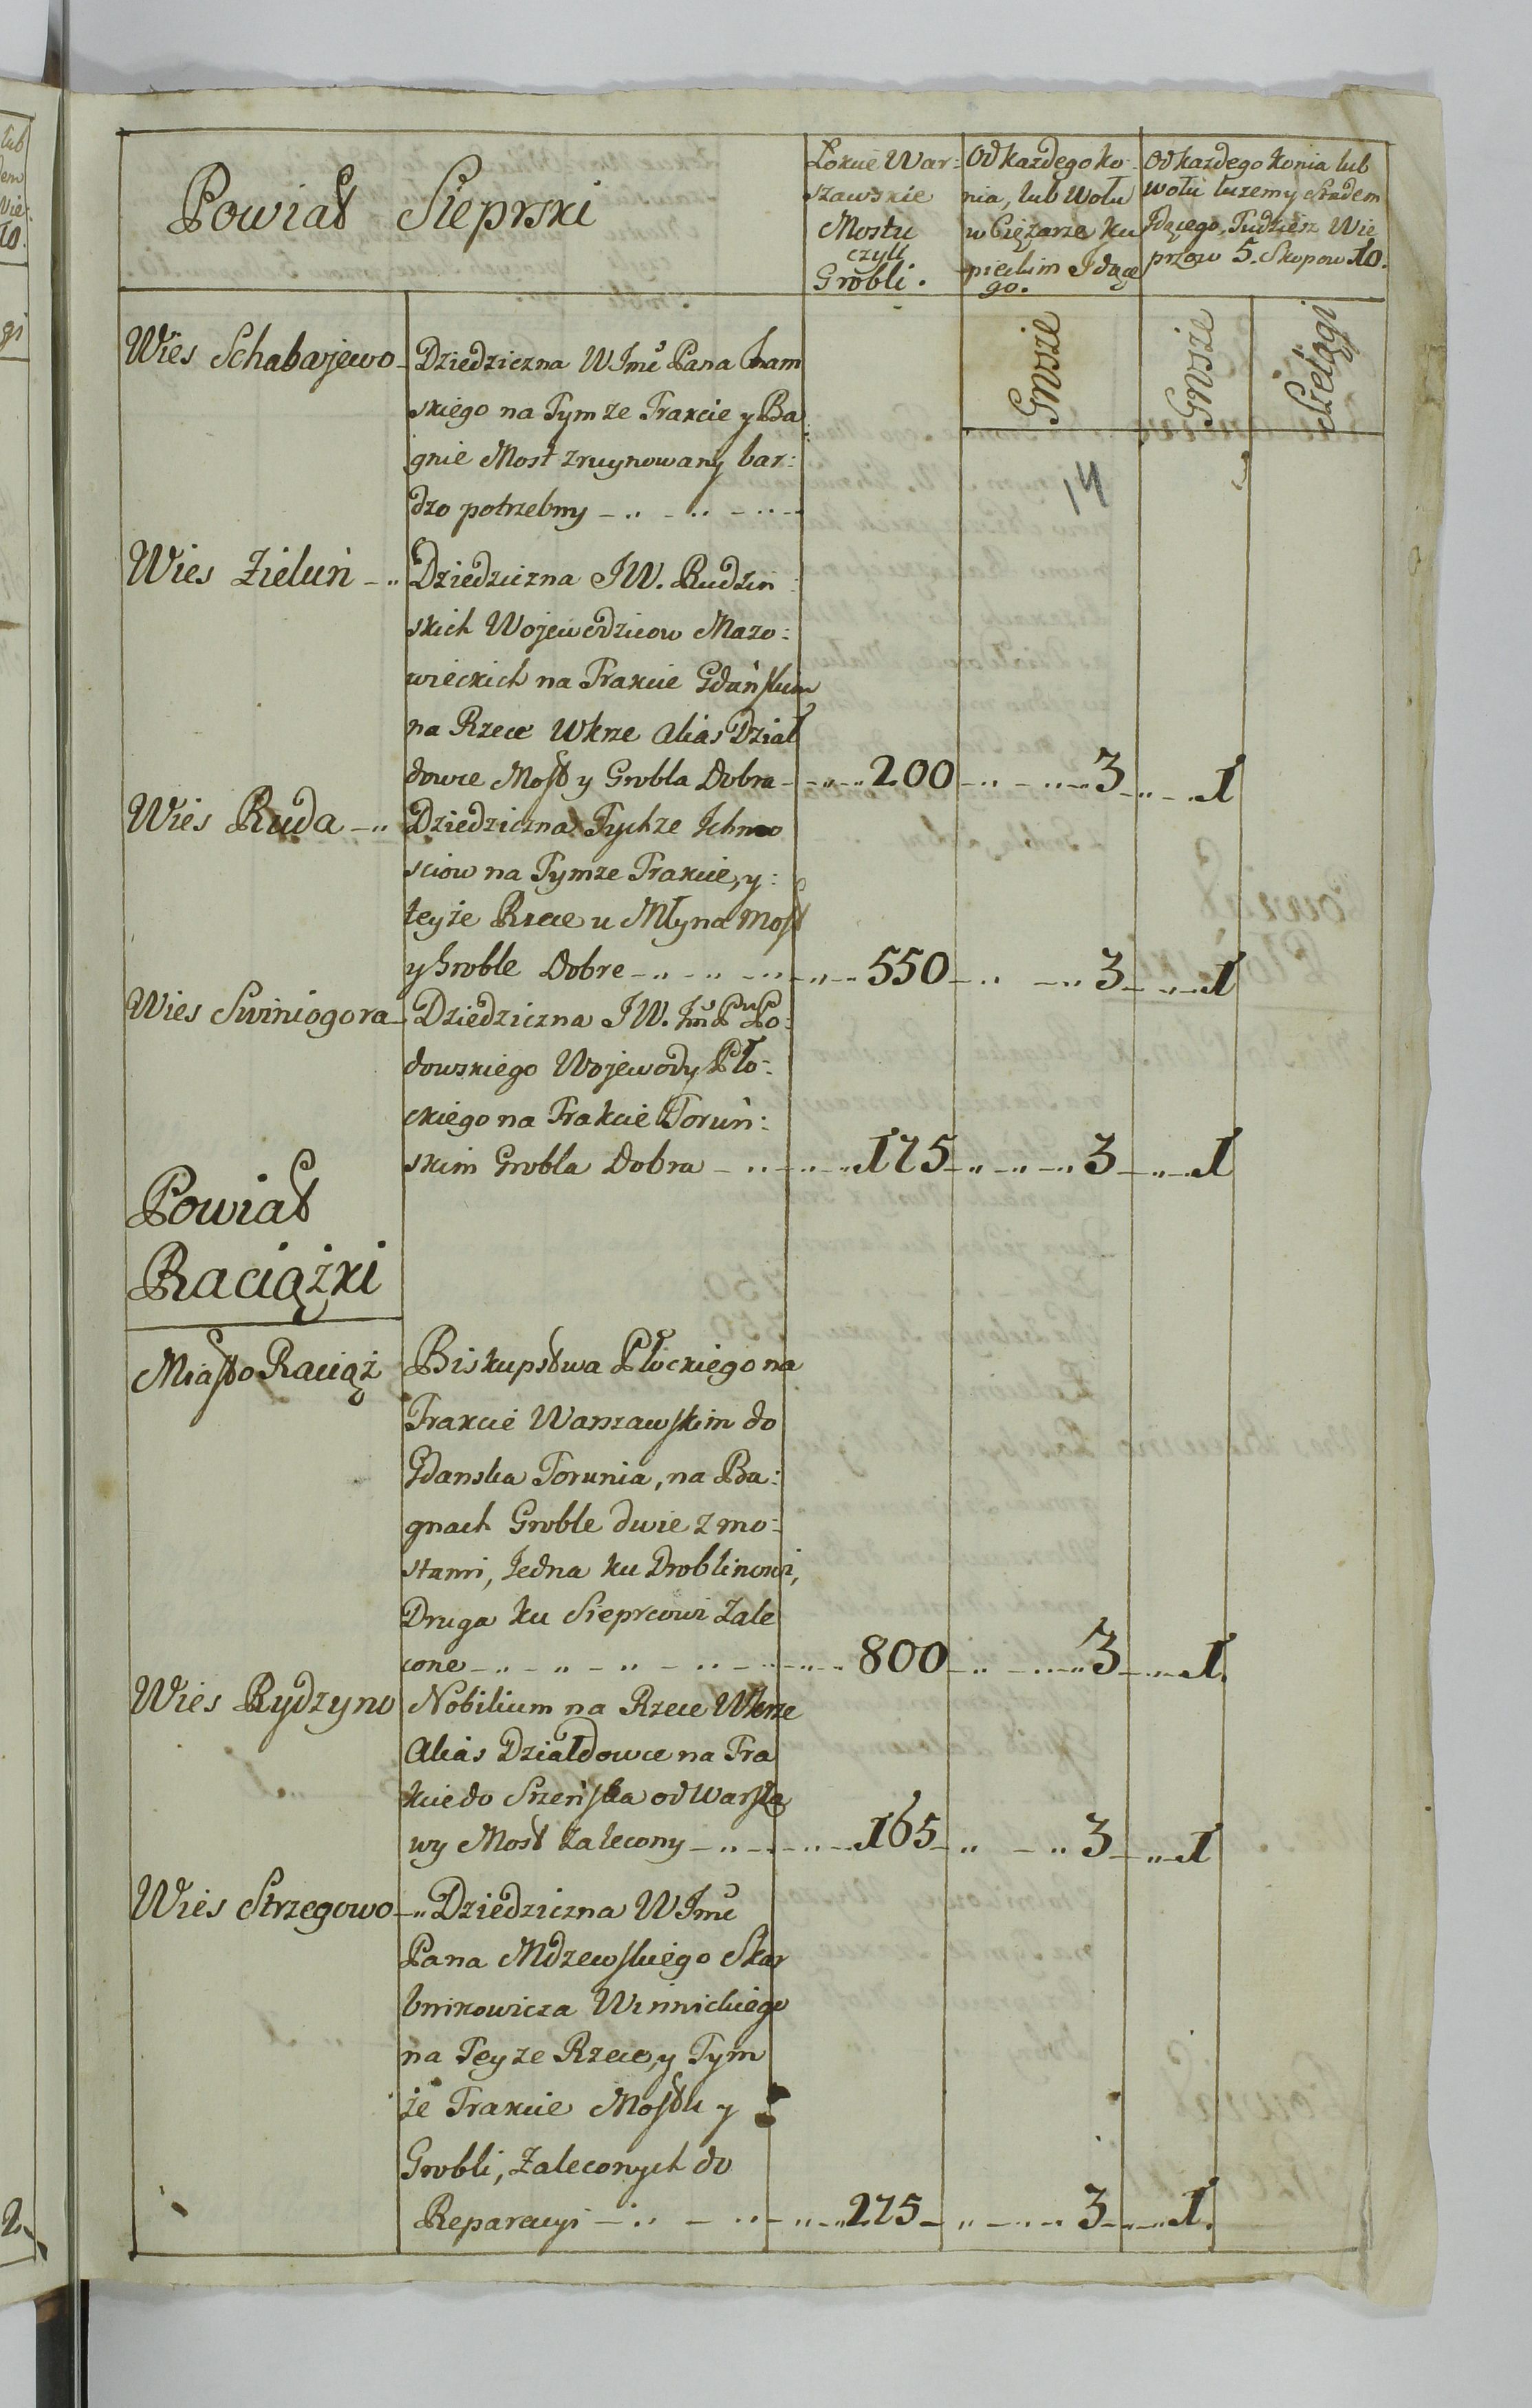 Powiat Sieprski
Łokcie War:
szawskie
Mostu
czyli
Grobli.
Od każdego ko
nia, lub Wołu
w Ciężarze ku
pieckim Idące
go.
Od każdego konia lub
wołu luzem y Stadem
Idącego, Tudziesz Wie
przow 5. Skopow 10.
Grosze
Grosze
Szelągi
Wies Schabajewo
Dziedziczna WJmć Pana
skiego na Tymze Trakcie y Ba
gnie Most zruynowany bar:
dzo potrzebny
14
Wies Zieluń
Dziedziczna JW. Rudziń
skich Wojewodzicow Mazo:
wieckich na Trakcie Gdańskim
na Rzece Wkrze alias Dział
dowce Most y Grobla Dobra 200 3 1
Wies Ruda
Dziedziczna Tychze Ichmo
sciow na Tymze Trakcie, y:
teyże Rzece u Młyna Most
y Groble Dobre 550 3 1
Wies Swiniogora
Dziedziczna JW. Jmć Pa Po:
dowskiego Wojewody Pło:
ckiego na Trakcie Toruń:
skim Grobla Dobra 175 3 1
Powiat
Raciążki
Miasto Raciąż
Biskupstwa Płockiego na
Trakcie Warszawskim do
Gdanska Torunia, na Ba:
gnach Groble dwie z mo:
stami, Jedna ku Droblinowi,
Druga ku Sieprcowi Zale
cone 800 3 1.
Wies Rydzyno
Nobilium na Rzece Wkrze
Alias Działdowce na Tra
kcie do Szeńska od Warsza
wy Most zalecony 165 3 1
Wies Strzegowo
Dziedziczna WJmć
Pana Mdzewskiego Skar
bnikowicza Winnickiego
na Teyze Rzece, y Tym
że Trakcie Mostu y
Grobli, Zaleconych do
Reparacyi 275 3 1.